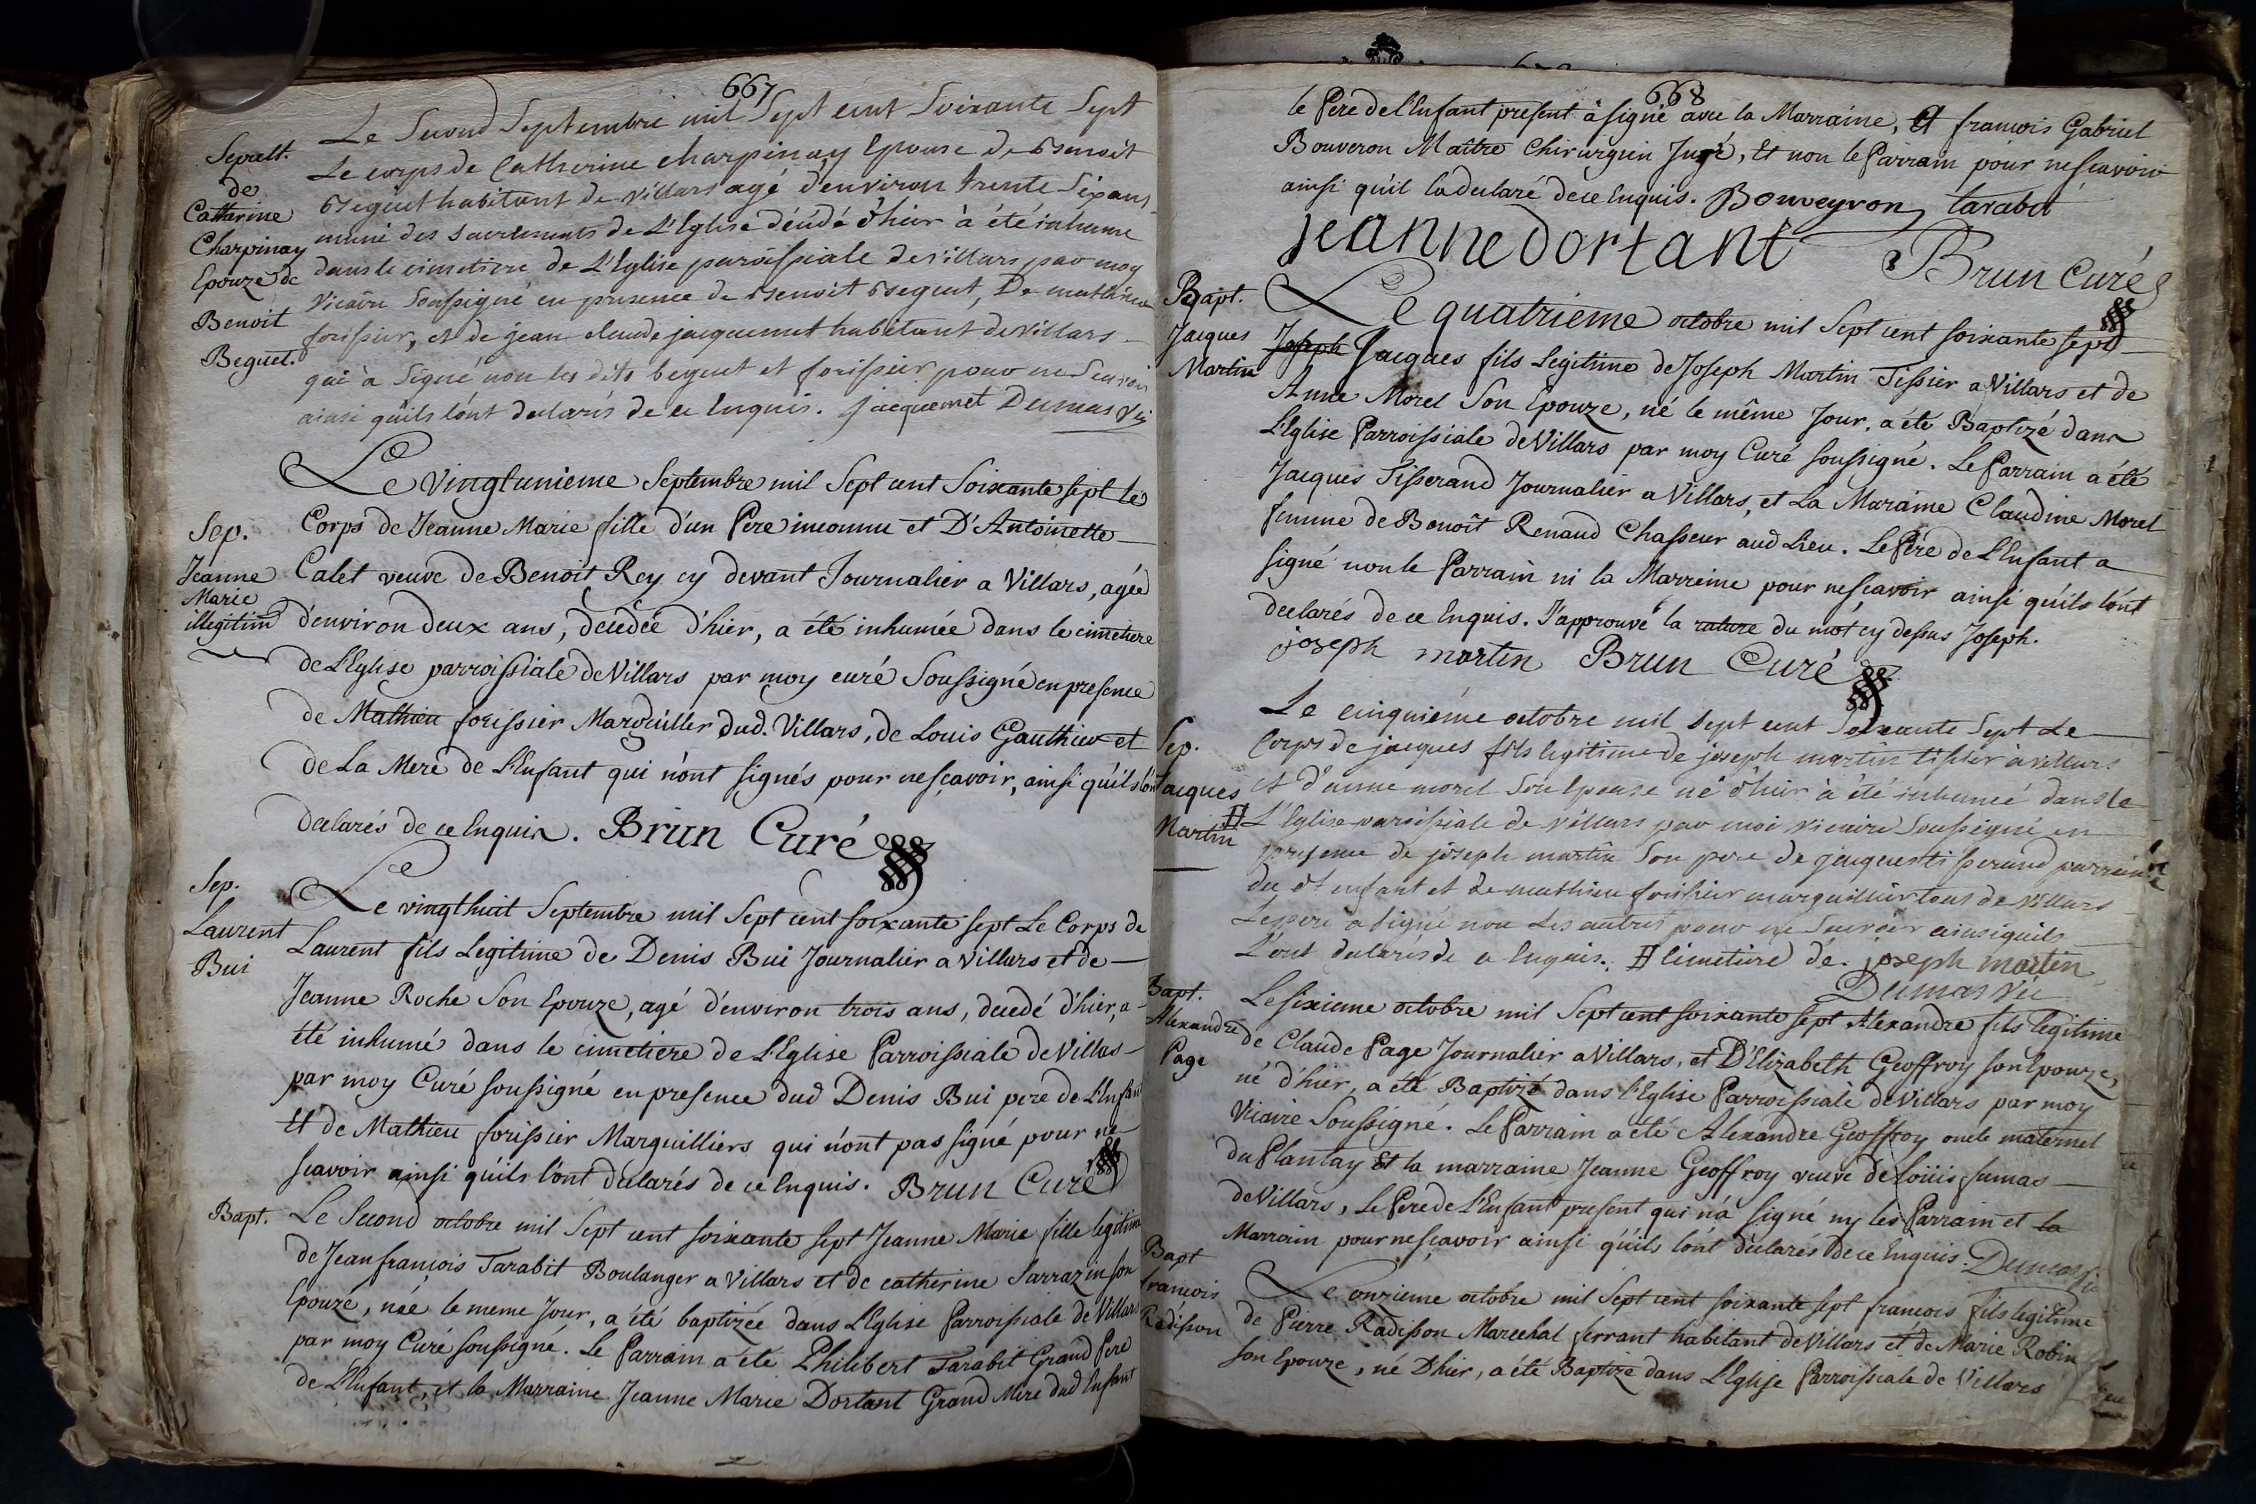 667
Sepult.
de
Catherine
Charpinay
Epouze de
Benoit
Beguet.
Le Second Septembre mil Sept cent Soixante Sept
Le corps de Catherine charpinay Epouse de Benoit
Beguet habitant de villars agé d'environ trente Six ans
muni des sacrements de L'Eglise décédé d'hier à été inhumé
dans le cimetiere de L'Eglise paroissiale de villars par moy
vicaire Soussigné en presence de Benoit Beguet, De mathieu
forissier, et de jean claude jacquemet habitant de villars
qui à Signé non les dits beguet et forissier pour ne Scavoir
ainsi quils lónt declarés de ce Enquis. jacquemet Dumas vic
Sep.
Jeanne
Marie
illegitime
Le vingtunieme Septembre mil Sept cent Soixante sept le
Corps de Jeanne Marie fille d'un Pere inconnu et D'Antoinette
Calet veuve de Benoit Rey cy devant Journalier a Villars, agée
d'environ deux ans, décédée d'hier, a été inhumée dans le cimetiere
de L'Eglise parroissiale de Villars par moy curé Soussigné en presence
de Mathieu forissier Marguiller dud. Villars, de Louis Gauthier et
de La Mere de L'Enfant qui n'ont signés pour ne scavoir, ainsi qu'ils l'ont
declarés de ce Enquis. Brun Curé
Sep.
Laurent
Bui
Le vingthuit Septembre mil Sept cent soixante sept Le Corps de
Laurent fils Legitime de Denis Bui Journalier a Villars et de
Jeanne Roche Son Epouze, agé d'environ trois ans, decedé d'hier, a
été inhumé dans le cimetiere de L'Eglise Parroissiale de Villas
par moy Curé soussigné en presence dud Denis Bui pere de L'Enfant
Et de Mathieu forissier Marguilliers qui n'ont pas signé pour ne
scavoir ainsi qu'ils l'ont declarés de ce Enquis. Brun Curé
Bapt.
Le Second octobre mil Sept cent soixante sept Jeanne Marie fille legitime
de Jean françois Tarabit Boulanger a Villars et de catherine Sarrazin son
Epouze, née le meme Jour, a été baptizée dans L'Eglise Parroissiale de Villars
par moy Curé soussigné. Le Parrain a été Philibert Tarabit Grand Pere
de L'Enfant, et la Marraine Jeanne Marie Dortant Grand Mere dud Enfant
668
le Pere de l'Enfant present à signé avec la Marraine, Et francois Gabriel
Bouveron Maître Chirurgien Juré, Et non le Parrain pour ne scavoir
ainsi qu'il la declaré de ce Enquis. Bouveyron tarabit
jeanne dortant
Brun Curé
Bapt.
Jacques
Martin
Le quatrieme octobre mil Sept cent soixante sept
Joseph Jacques fils Legitime de Joseph Martin Tissier a Villars et de
Anne Morel Son Epouze, né le même Jour, a été Baptizé dans
L'Eglise Parroissiale de Villars par moy Curé soussigné. Le Parrain a été
Jacques Tisserand Journalier a Villars, et La Maraine Claudine Morel
femme de Benoît Renaud Chasseur aud Lieu. Le Pere de L'Enfant a
signé non le Parrain ni la Marreine pour ne scavoir ainsi qu'ils l'ónt
declarés de ce Enquis. J'approuve la rature du mot cy dessus Joseph.
joseph martin Brun Curé
Sep.
Jacques
Martin
Le cinquiéme octobre mil sept cent Soixante Sept Le
Corps de jacques fils legitime de joseph martin tissier à villars
et d'anne morel Son Epouse né d'hier à été inhumé dans le #
L'Eglise paroissiale de villars par moi vicaire Soussigné en
presence de joseph martin Son pere de jacques tisserand parrain
du dt enfant et de mathieu forissier marguillier tous de villars
Le pere a signé non Les autres pour ne Scavoir ainsi quils
L'ont declarés de ce Enquis. # cimetiere de. joseph martin
Dumas Vic
Bapt.
Alexandre
Page
Le sixieme octobre mil Sept cent soixante sept Alexandre fils legitime
de Claude Page Journalier a Villars, et D'Elizabeth Geoffroy son Epouze,
né d'hier, a été Baptizé dans l'Eglise Parroissiale de Villars par moy
Vicaire Soussigné. Le Parrain a été Alexandre Geoffroy oncle maternel
du Plantay Et la marraine Jeanne Geoffroy veuve de loüis fumas
de Villars, Le Pere de L'Enfant present qui n'a signé ny les Parrain et la
Marrain pour ne scavoir ainsi qu'ils l'ont declarés de ce Enquis. Dumas Vic
Bapt
francois
Radisson
Le onzieme octobre mil Sept cent soixante sept francois fils legitime
de Pierre Radisson Marechal ferrant habitant de Villars et de Marie Robin
son Epouze, né D'hier, a été Baptizé dans L'Eglise Parroissiale de Villars